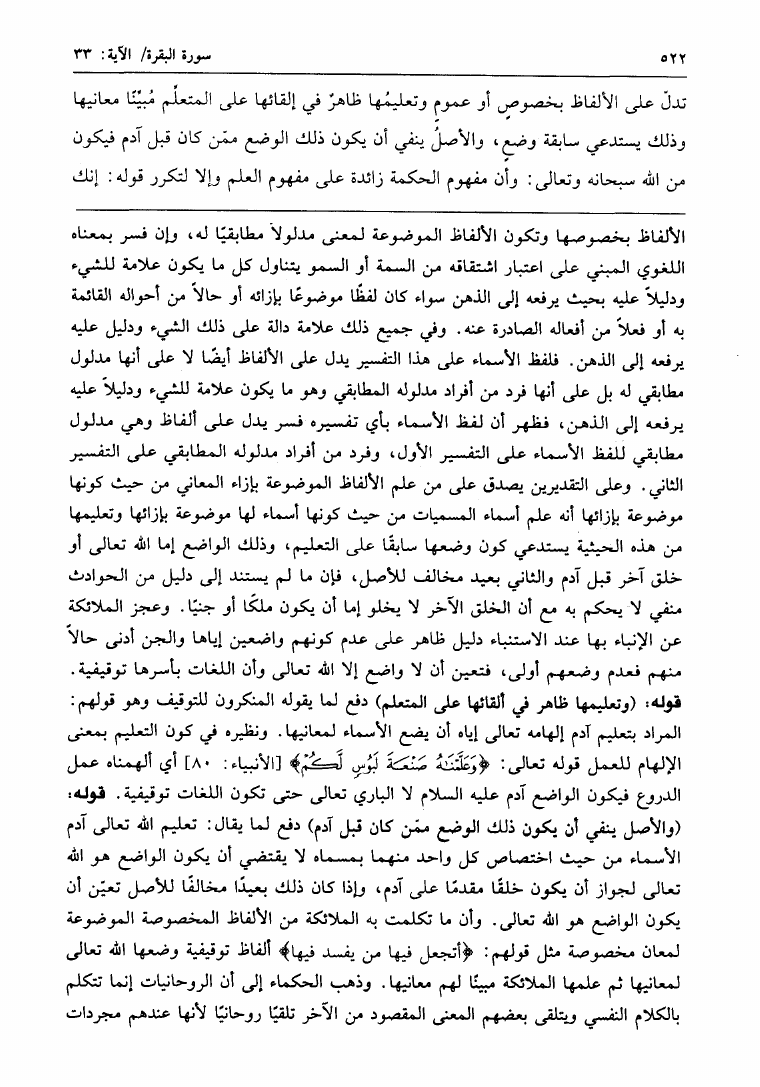 ٥٢٢
سورة البقرة/ الآية: ٣٣
تدلّ على الألفاظ بخصوصٍ أو عمومٍ وتعليمُها ظاهرٌ في إلقائها على المتعلِّم مُبيِّنًا معانيها
وذلك يستدعي سابقة وضعٍ، والأصلُ ينفي أن يكون ذلك الوضع ممّن كان قبل آدم فيكون
من الله سبحانه وتعالى: وأن مفهوم الحكمة زائدة على مفهوم العلم وإلا لتكرر قوله: إنك
الألفاظ بخصوصها وتكون الألفاظ الموضوعة لمعنى مدلولاً مطابقيًا له، وإن فسر بمعناه
اللغوي المبني على اعتبار اشتقاقه من السمة أو السمو يتناول كل ما يكون علامة للشيء
ودليلاً عليه بحيث يرفعه إلى الذهن سواء كان لفظًا موضوعًا بإزائه أو حالاً من أحواله القائمة
به أو فعلاً من أفعاله الصادرة عنه. وفي جميع ذلك علامة دالة على ذلك الشيء ودليل عليه
يرفعه إلى الذهن. فلفظ الأسماء على هذا التفسير يدل على الألفاظ أيضًا لا على أنها مدلول
مطابقي له بل على أنها فرد من أفراد مدلوله المطابقي وهو ما يكون علامة للشيء ودليلاً عليه
يرفعه إلى الذهن، فظهر أن لفظ الأسماء بأي تفسيره فسر يدل على ألفاظ وهي مدلول
مطابقي للفظ الأسماء على التفسير الأول، وفرد من أفراد مدلوله المطابقي على التفسير
الثاني. وعلى التقديرين يصدق على من علم الألفاظ الموضوعة بإزاء المعاني من حيث كونها
موضوعة بإزائها أنه علم أسماء المسميات من حيث كونها أسماء لها موضوعة بإزائها وتعليمها
من هذه الحيثية يستدعي كون وضعها سابقًا على التعليم، وذلك الواضع إما الله تعالى أو
خلق آخر قبل آدم والثاني بعيد مخالف للأصل، فإن ما لم يستند إلى دليل من الحوادث
منفي لا يحكم به مع أن الخلق الآخر لا يخلو إما أن يكون ملكًا أو جنيًا. وعجز الملائكة
عن الإنباء بها عند الاستنباء دليل ظاهر على عدم كونهم واضعين إياها والجن أدنى حالاً
منهم فعدم وضعهم أولى، فتعين أن لا واضع إلا الله تعالى وأن اللغات بأسرها توقيفية.
قوله: (وتعليمها ظاهر في ألقائها على المتعلم) دفع لما يقوله المنكرون للتوقيف وهو قولهم:
المراد بتعليم آدم إلهامه تعالى إياه أن يضع الأسماء لمعانيها. ونظيره في كون التعليم بمعنى
الإلهام للعمل قوله تعالى: ﴿وَعَلَّمْنَٰهُ صَنْعَةَ لَبُوسٍ لَّكُمْ﴾ [الأنبياء: ٨٠] أي ألهمناه عمل
الدروع فيكون الواضع آدم عليه السلام لا الباري تعالى حتى تكون اللغات توقيفية. قوله:
(والأصل ينفي أن يكون ذلك الوضع ممّن كان قبل آدم) دفع لما يقال: تعليم الله تعالى آدم
الأسماء من حيث اختصاص كل واحد منهما بمسماه لا يقتضي أن يكون الواضع هو الله
تعالى لجواز أن يكون خلقًا مقدمًا على آدم، وإذا كان ذلك بعيدًا مخالفًا للأصل تعيّن أن
يكون الواضع هو الله تعالى. وأن ما تكلمت به الملائكة من الألفاظ المخصوصة الموضوعة
لمعان مخصوصة مثل قولهم: ﴿أتجعل فيها من يفسد فيها﴾ ألفاظ توقيفية وضعها الله تعالى
لمعانيها ثم علمها الملائكة مبينًا لهم معانيها. وذهب الحكماء إلى أن الروحانيات إنما تتكلم
بالكلام النفسي ويتلقى بعضهم المعنى المقصود من الآخر تلقيًا روحانيًا لأنها عندهم مجردات